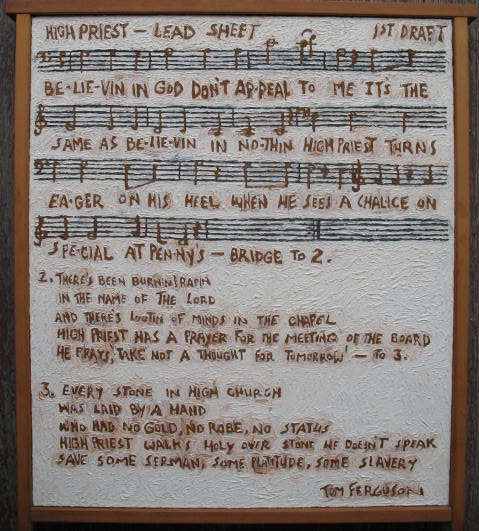 HIGH PRIEST — LEAD SHEET 1ST DRAFT
BE-LIE-VIN IN GOD DON'T AP-PEAL TO ME IT'S THE
SAME AS BE-LIE-VIN IN NO-THIN HIGH PRIEST TURNS
EA-GER ON HIS HEEL WHEN HE SEES A CHALICE ON
SPE-CIAL AT PEN-NY'S — BRIDGE TO 2.
2. THERE'S BEEN BURNIN' RAPIN
IN THE NAME OF THE LORD
AND THERE'S LOOTIN OF MINDS IN THE CHAPEL
HIGH PRIEST HAS A PRAYER FOR THE MEETING OF THE BOARD
HE PRAYS, 'TAKE NOT A THOUGHT FOR TOMORROW' — TO 3.
3. EVERY STONE IN HIGH CHURCH
WAS LAID BY A HAND
WHO HAD NO GOLD, NO ROBE, NO STATUS
HIGH PRIEST WALKS HOLY OVER STONE HE DOESN'T SPEAK
SAVE SOME SERMAN, SOME PLATITUDE, SOME SLAVERY
TOM FERGUSON